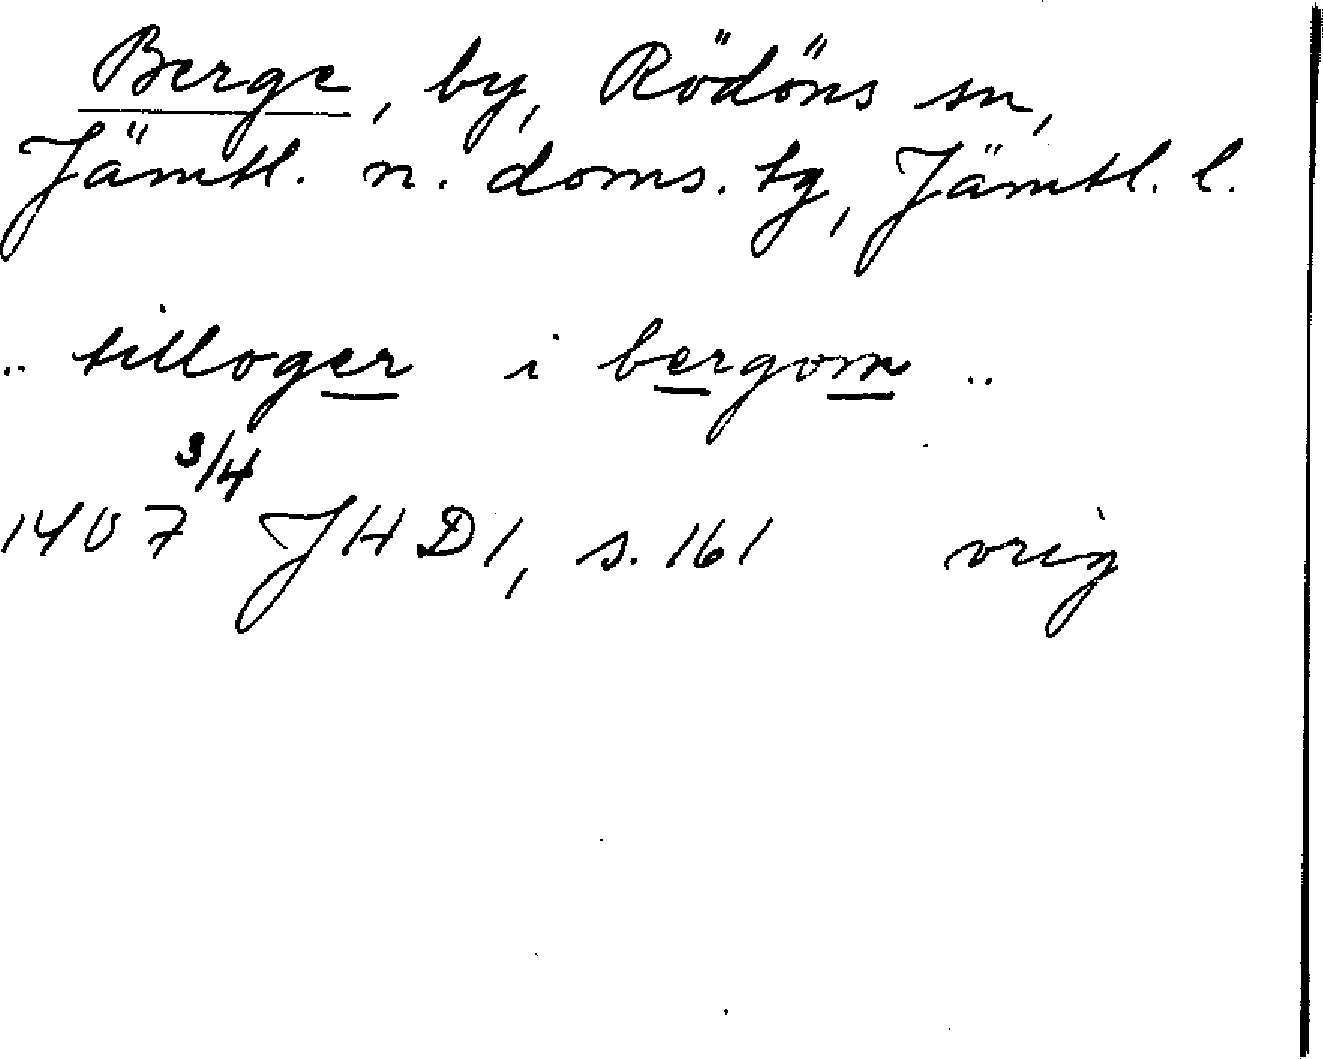 Berge, by, Rödöns sn,
Jämtl. n. doms. tg, Jämtl. l.
.. tilloger i bergom ..
1407 3/4 JHD 1, s. 161 orig